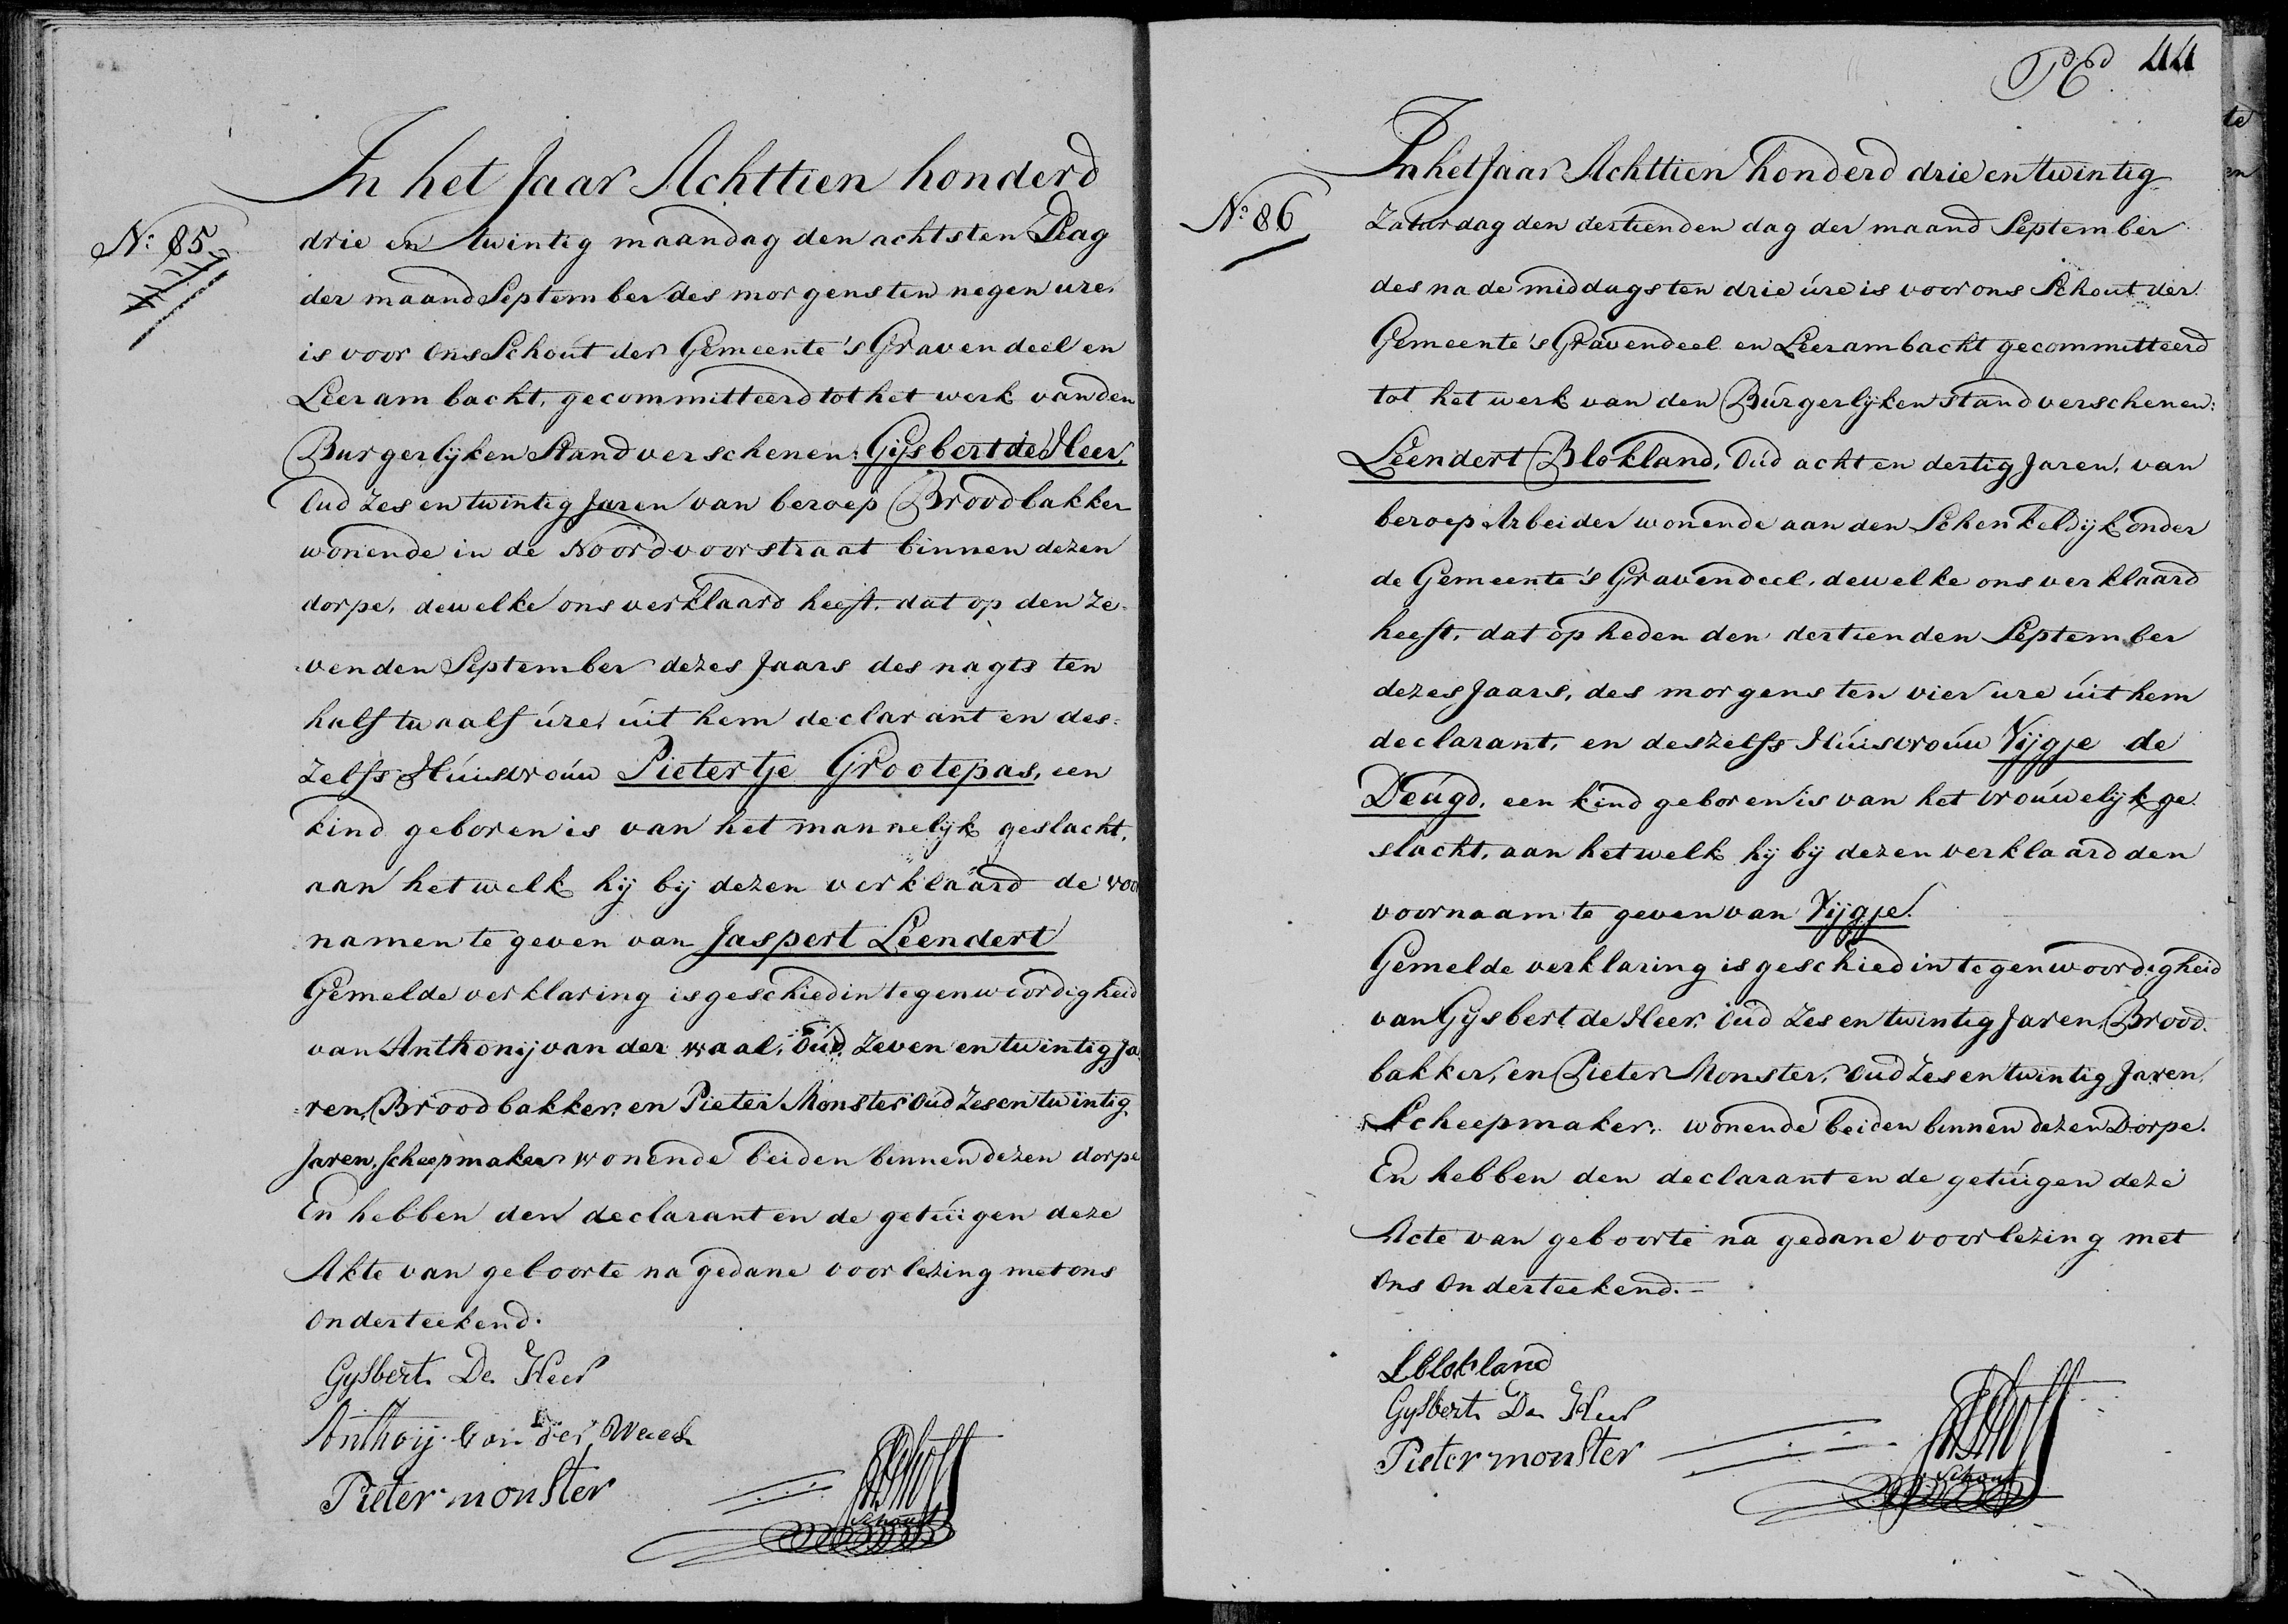 In het Jaar Achttien honderd
N: 85
drie en twintig maandag den achtsten Dag
der maand September des morgens ten negen ure,
is voor Ons Schout der Gemeente 's Gravendeel en
Leerambacht, gecommitteerd tot het werk van den
Burgerlijken Stand verschenen: Gijsbert de Heer,
Oud zes en twintig Jaren van beroep Broodbakker
wonende in de Noordvoorstraat binnen dezen
dorpe, dewelke ons verklaard heeft, dat op den Ze-
venden September dezes Jaars des nagts ten
half twaalf úre, úit hem declarant en des-
zelfs Húisvroúw Pietertje Grootepas, een
kind geboren is van het mannelijk geslacht,
aan hetwelk hij bij dezen verklaard de voor
namen te geven van Jaspert Leendert
Gemelde verklaring is geschied in tegenwoordigheid
van Anthonij van der Waal, Oúd zeven en twintig Ja
ren, Broodbakker, en Pieter Monster Oud zes en twintig
Jaren, Scheepmaker wonende beiden binnen dezen dorpe
En hebben den declarant en de getúigen deze
Akte van geboorte na gedane voorlezing met ons
Onderteekend.
Gysbert De Heer
Anthoij van der Wael
Pieter monster
Schout
44
In het Jaar Achttien honderd drie en twintig
N: 86
Zaturdag den dertienden dag der maand September
des na de middags ten drie úre is voor ons Schout der
Gemeente 's Gravendeel en Leerambacht gecommitteerd
tot het werk van den Búrgerlijken stand verschenen:
Leendert Blokland, Oúd acht en dertig Jaren, van
beroep Arbeider wonende aan den Schenkeldijk onder
de Gemeente 's Gravendeel, dewelke ons verklaard
heeft, dat op heden den dertienden September
dezes Jaars, des morgens ten vier ure úit hem
declarant, en deszelfs Húisvroúw Vijgje de
Deúgd, een kind geboren is van het vroúwelijk ge
slacht, aan hetwelk hij bij dezen verklaard den
voornaam te geven van Vijgje.
Gemelde verklaring is geschied in tegenwoordigheid
van Gijsbert de Heer, Oúd zes en twintig Jaren, Brood-
bakker, en Pieter Monster, Oud zes en twintig Jaren,
Scheepmaker, wonende beiden binnen dezen Dorpe.
En hebben den declarant en de getúigen deze
Acte van geboorte na gedane voorlezing met
Ons Onderteekend.
LBlokland
Gysbert De Heer
Pieter monster
Schout